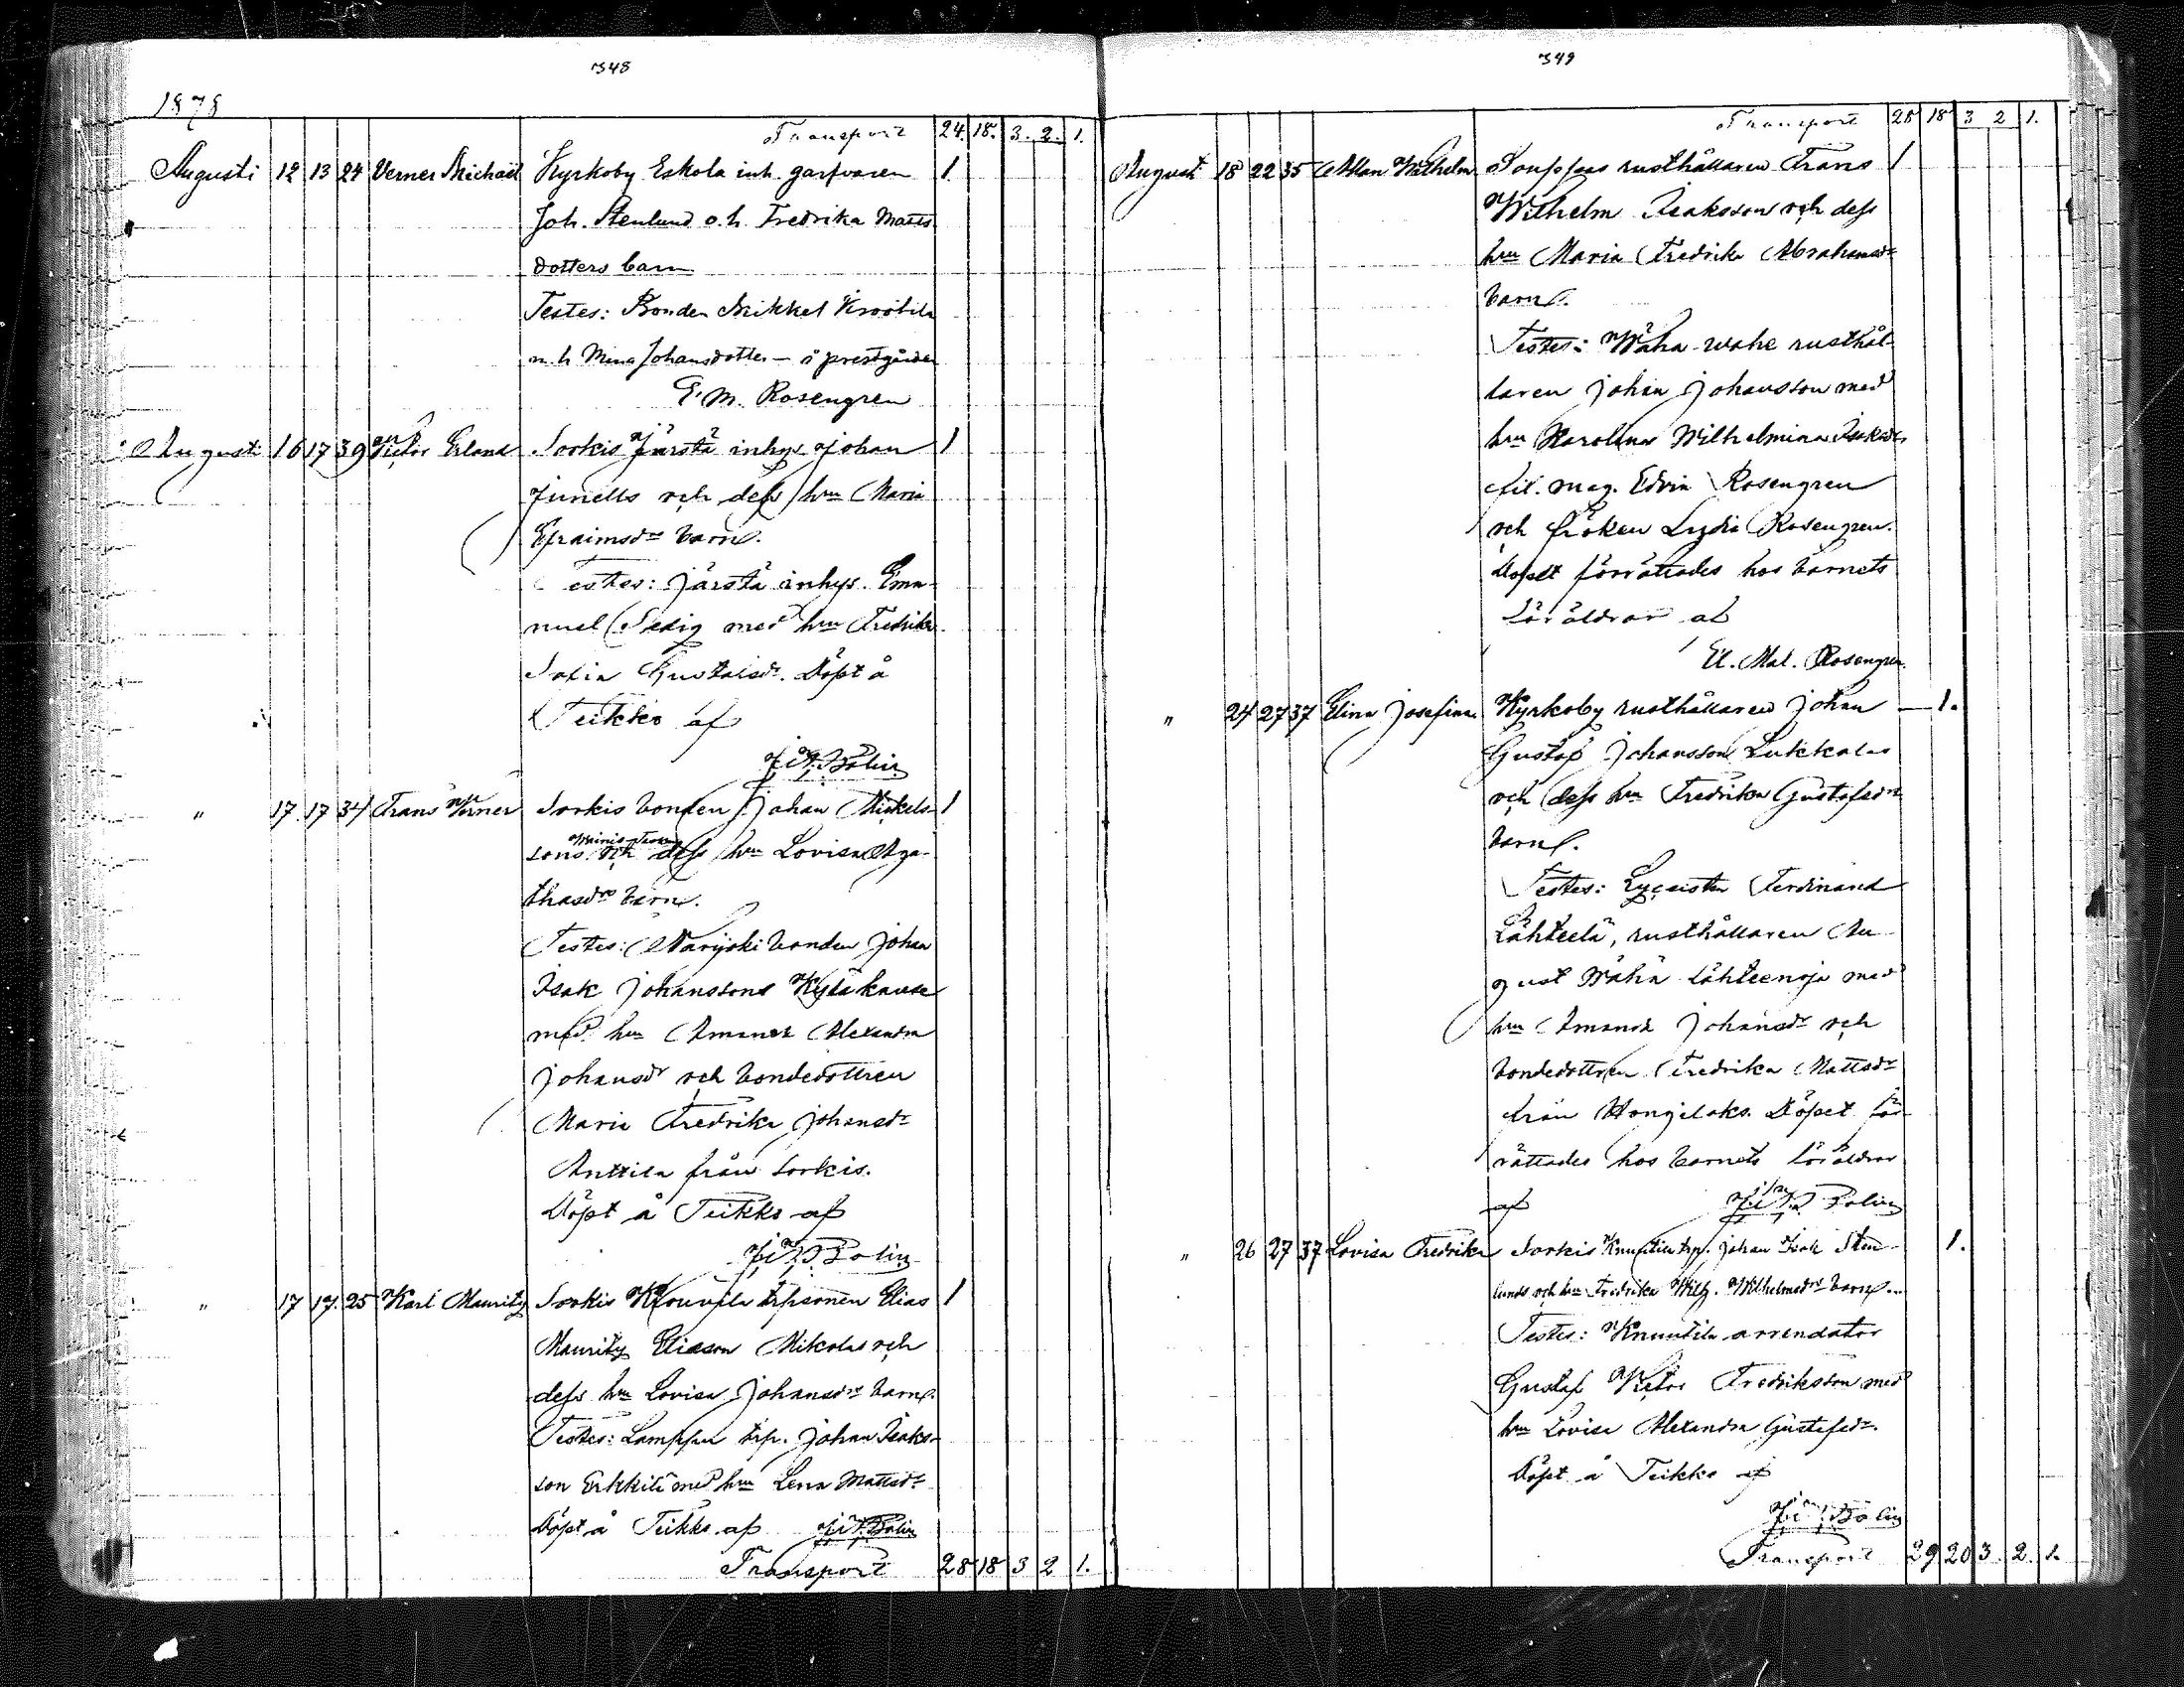 348
1878
Transport 24. 18. 3. 2. 1.
Augusti 12 13 24 Verner Michaël Kyrkoby Eskola inh. garfvaren 1
Joh. Stenlund o.h. Fredrika Matts
dotters barn
Testes: Bonden Mikkel Krootila
m.h. Mina Johansdotter – å prestgården
E. M. Rosengren
Augusti 16 17 39 Victor Erland Sorkis Järstä inhys Johan 1
Junells och dess hm Maria
Efraimsdrs barn.
Testes: Järstä inhys. Ema-
nuel Sedig med hm Fredrika
Sofia Gustafsdr. Döpt å
Teikko af
Bolin
" 17. 17 34 Frans Verner Sorkis bonden Johan Mickels- 1
sons och dess hm Lovisa Aga-
thasdrs barn.
Testes: bonden Johan
Isak Johanssons Kyläkause
med hm Amanda Alexandra
Johansdr och bondedottren
Maria Fredrika Johansdr
Anttila från Sorkis.
Döpt å Teikko af
Bolin
" 17 17. 25 Karl Mauritz Sorkis Kouvila trpsonen Elias 1
Mauritz Eliasson Mikolas och
dess hm Lovisa Johansdrs barn.
Testes: Lamppu trp. Johan Isaks-
son Erkkilä med hm Lena Mattsdr
Döpt å Teikko af Bolin
Transport 28 18 3 2 1.
349
Transport 28 18 3 2 1.
August 18 22 35 Allan Wilhelm rusthållaren Frans 1
Wilhelm Isaksson och dess
hm Maria Fredrika Abrahamsdr
barn.
Testes: Wähä-wahe rusthål-
laren Johan Johansson med
hm Karolina Wilhelmina Isaksdr,
fil. mag. Edvin Rosengren
och fröken Lydia Rosengren.
Dopet förrättades hos barnets
föräldrar af
El. Mat. Rosengren.
" 24 27 37 Elina Josefina Kyrkoby rusthållaren Johan 1.
Gustaf Johansson Lukkalas
och dess hm Fredrika Gustafsdrs
barn.
Testes: Lyceisten Ferdinand
Lähteelä, rusthållaren Au-
gust Wähä Lähteenoja med
hm Amanda Johansdr och
bondedottren Fredrika Mattsdr
från Hongiloks. Döpet för-
rättades hos barnets föräldrar
af Bolin
" 26 27 37 Lovisa Fredrika Sorkis Knuutila trp. Johan Isak Sten- 1.
lunds och hm Fredrika Wilh. Wilhelmsdrs barn.
Testes: Knuutila arrendator
Gustaf Victor Fredriksson med
hm Lovisa Alexandra Gustafsdr.
Döpt å Teikko af
Bolin
Transport 29 20 3. 2. 1.